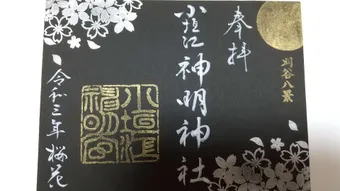 奉拝
刈谷八景
小垣江神明神社
小垣江神明宮
令和三年桜花